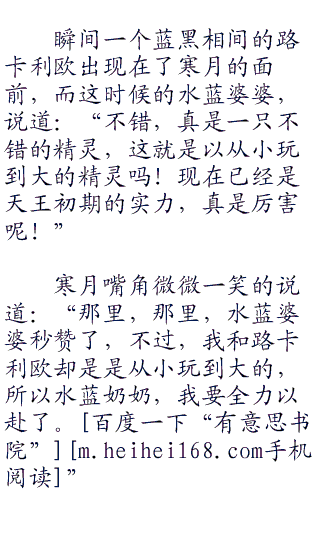 瞬间一个蓝黑相间的路
卡利欧出现在了寒月的面
前，而这时候的水蓝婆婆，
说道：“不错，真是一只不
错的精灵，这就是以从小玩
到大的精灵吗！现在已经是
天王初期的实力，真是厉害
呢！”
寒月嘴角微微一笑的说
道：“那里，那里，水蓝婆
婆秒赞了，不过，我和路卡
利欧却是是从小玩到大的，
所以水蓝奶奶，我要全力以
赴了。[百度一下“有意思书
院”][m.heihei168.com手机
阅读]”